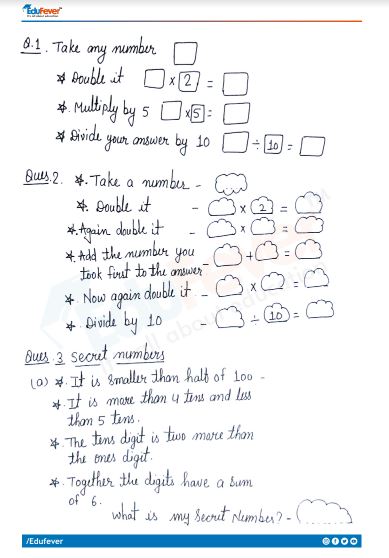 EduFever
It's all about education
Q.1. Take any number
* Double it × 2 =
* Multiply by 5 × 5 =
* Divide your answer by 10 ÷ 10 =
Ques.2. *. Take a number -
*. Double it - × 2 =
*. Again double it - × =
* Add the number you
took first to the answer - + =
*. Now again double it - × =
*. Divide by 10 - ÷ 10 =
Ques.3 Secret numbers
(a) *. It is smaller than half of 100 -
*. It is more than 4 tens and less
than 5 tens.
*. The tens digit is two more than
the ones digit.
*. Together the digits have a sum
of 6.
What is my Secret Number? -
/Edufever